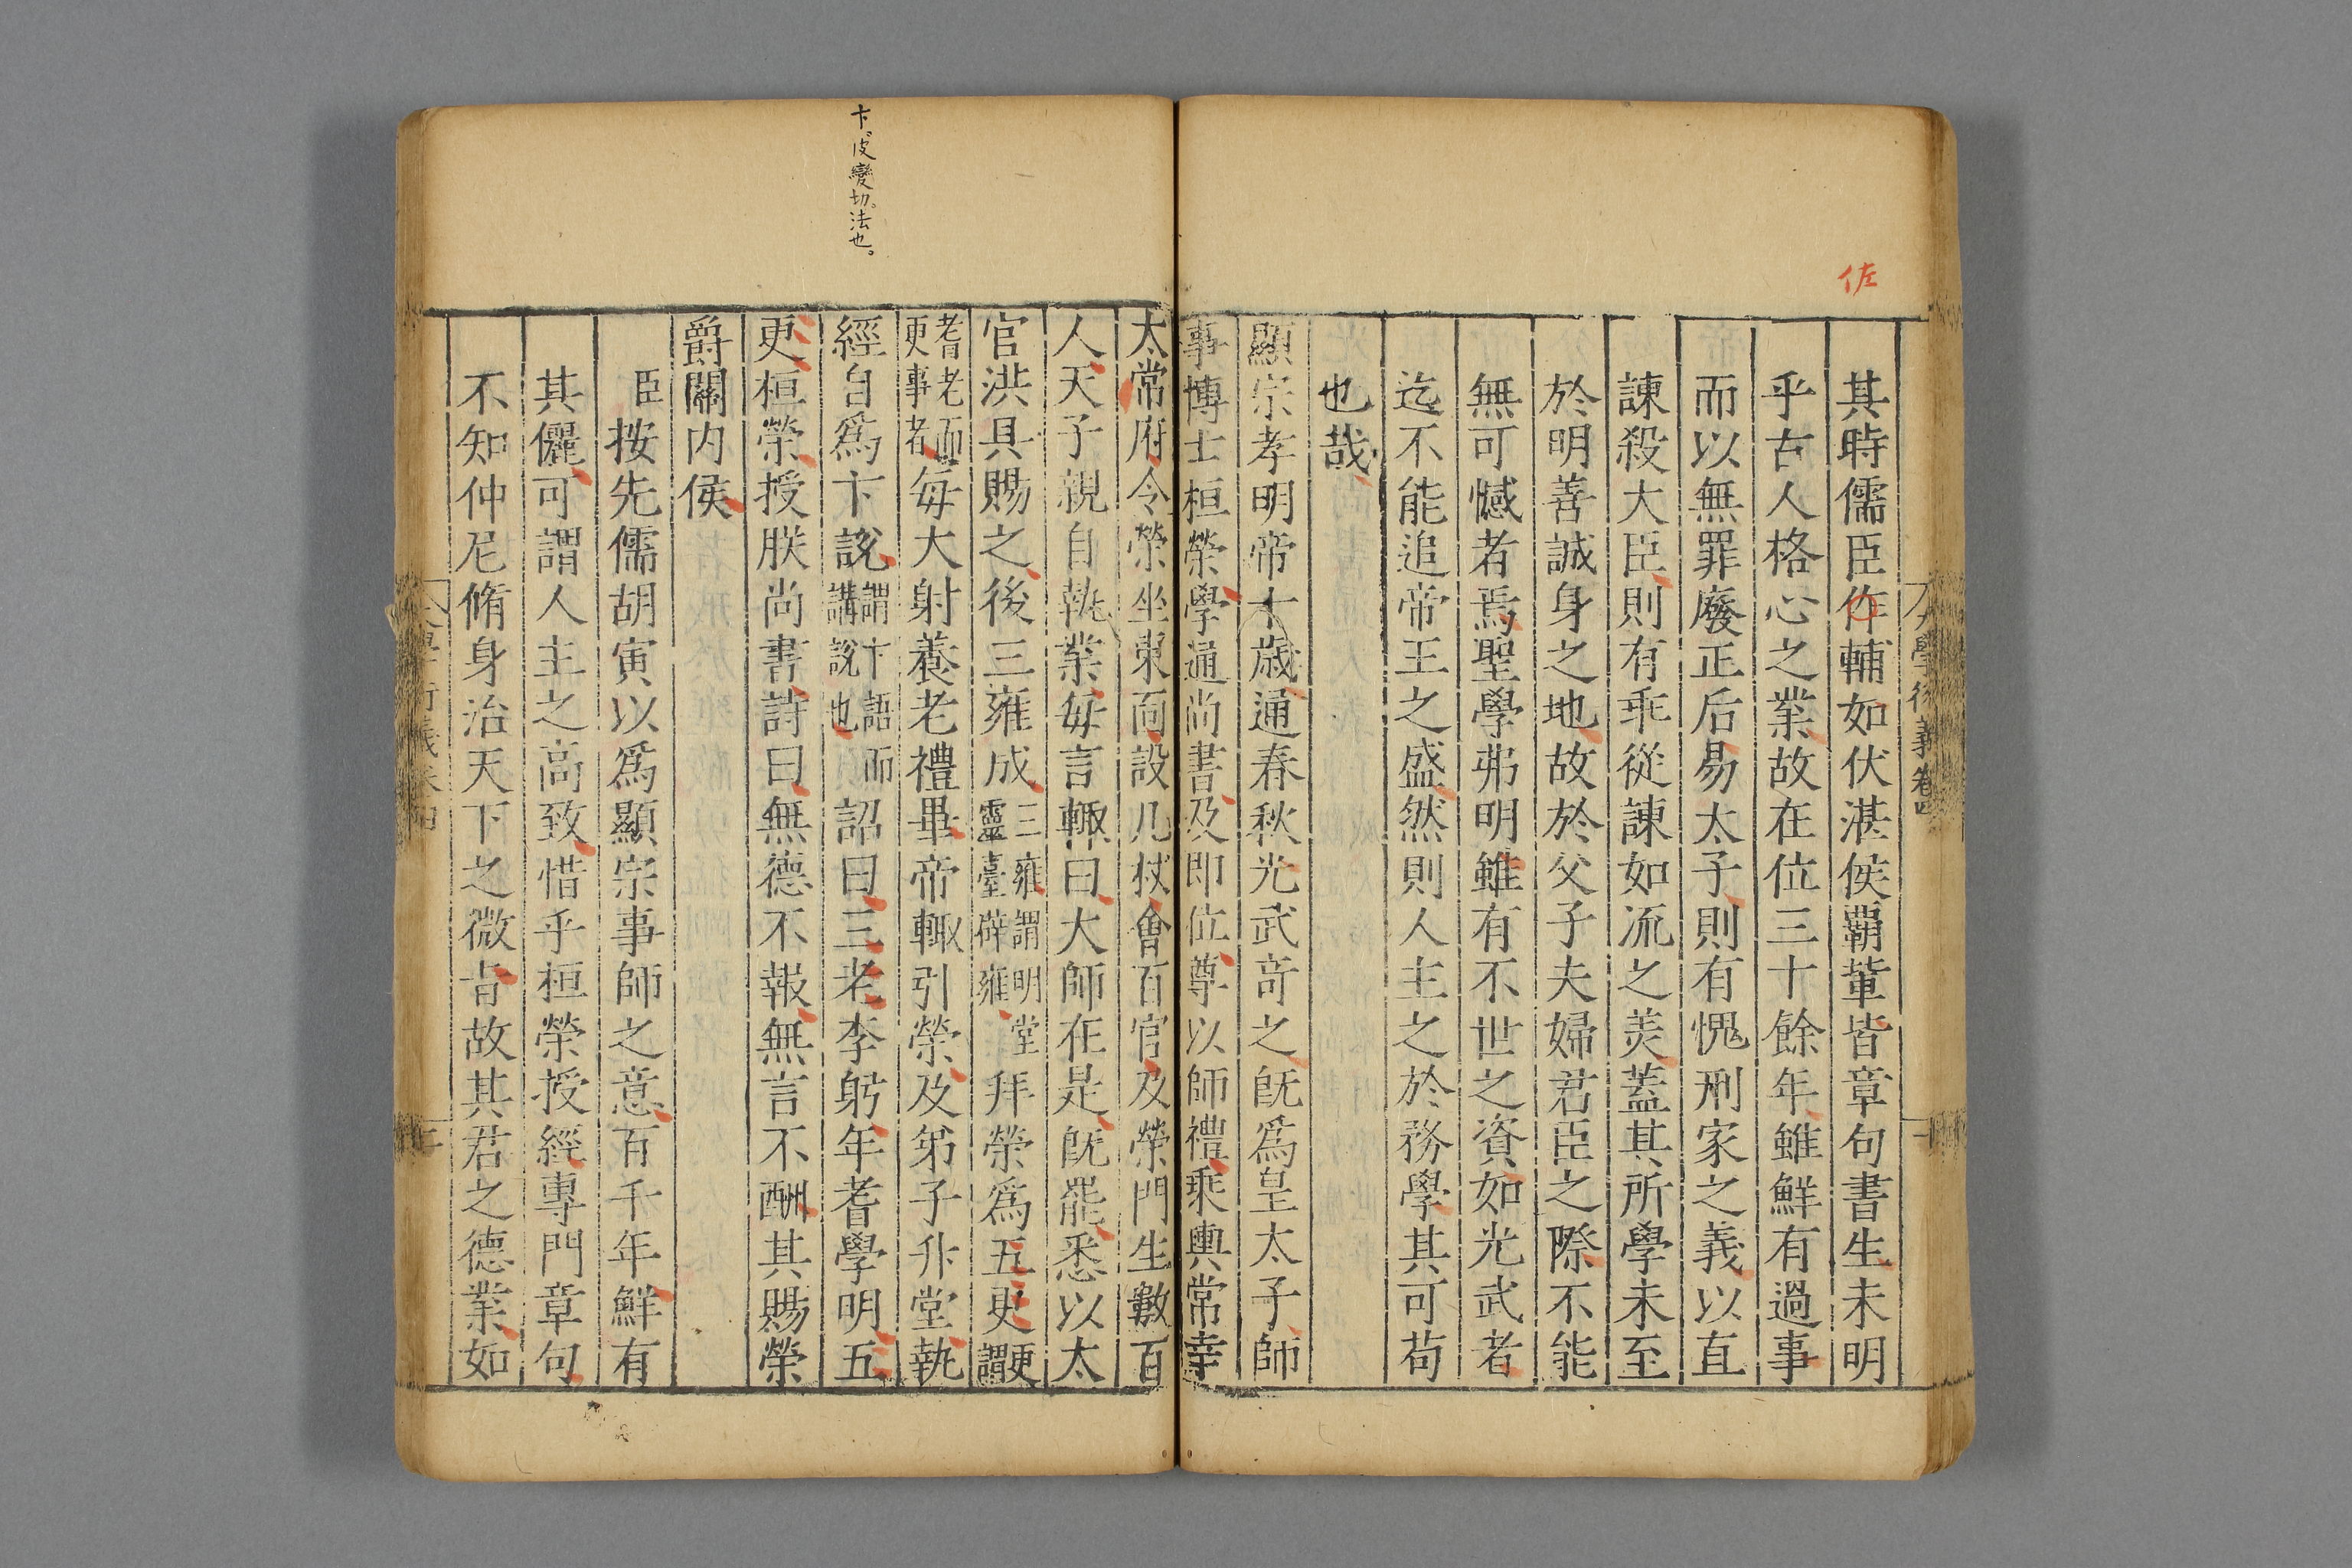 佐
大學衍義卷四
其時儒臣作輔如伏湛侯霸輩皆章句書生未明
乎古人格心之業故在位三十餘年雖鮮有過事
而以無罪廢正后易太子則有愧刑家之義以直
諫殺大臣則有乖從諫如流之美蓋其所學未至
於明善誠身之地故於父子夫婦君臣之際不能
無可憾者焉聖學弗明雖有不世之資如光武者
迄不能追帝王之盛然則人主之於務學其可苟
也哉
顯宗孝明帝十歲通春秋光武奇之旣爲皇太子師
事博士桓榮學通尚書及即位尊以師禮乘輿常幸
卞皮變切法也。
太常府令榮坐東面設几杖會百官及榮門生數百
人天子親自執業每言輒曰大師在是旣罷悉以太
官洪具賜之後三雍成三雍謂明堂靈臺辟雍拜榮爲五更更謂
耆老而更事者每大射養老禮畢帝輒引榮及弟子升堂執
經自爲卞說謂卞語而講說也詔曰三老李躬年耆學明五
更桓榮授朕尚書詩曰無德不報無言不酬其賜榮
爵關内侯
臣按先儒胡寅以爲顯宗事師之意百千年鮮有
其儷可謂人主之高致惜乎桓榮授經專門章句
不知仲尼脩身治天下之微旨故其君之德業如